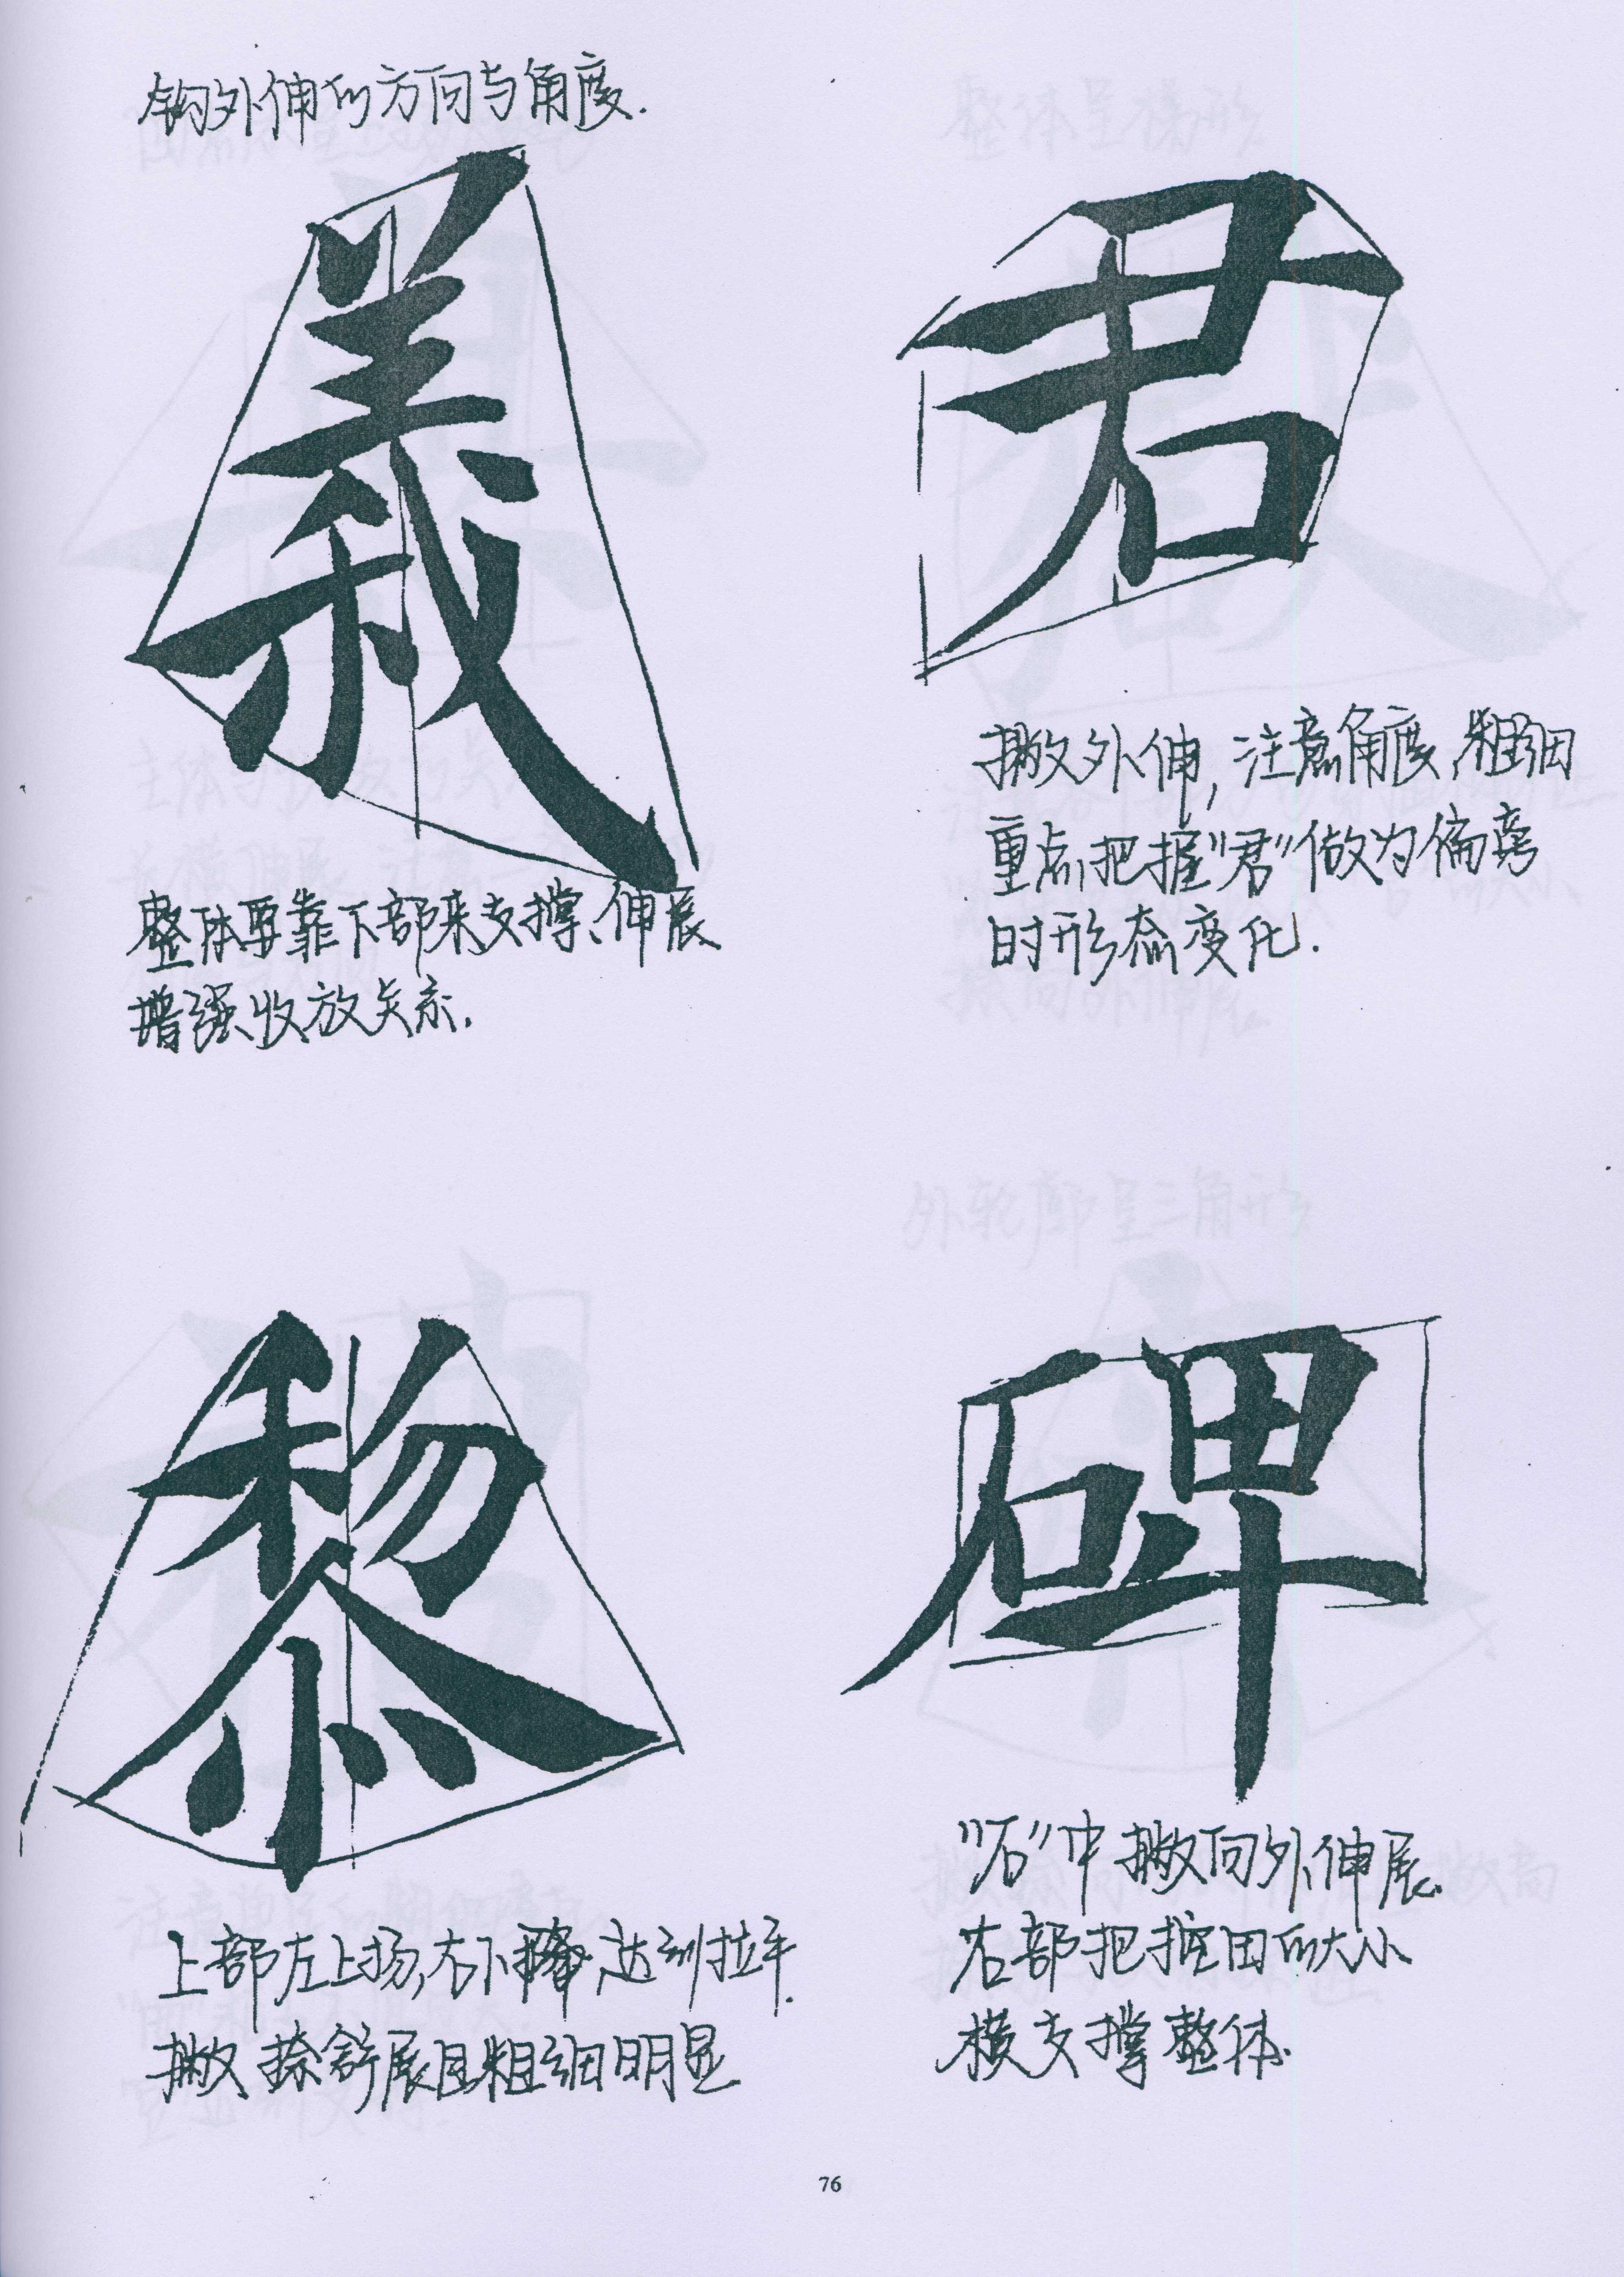 钩外伸的方向与角度.
義
整体要靠下部来支撑、伸展
增强收放关系.
君
撇外伸,注意角度、粗细
重点把握"君"做为偏旁
时形态变化.
黎
上部左上扬,右下降,达到拉平.
撇捺舒展且粗细明显
碑
"石"中撇向外伸展.
右部把握田的大小
横支撑整体.
76